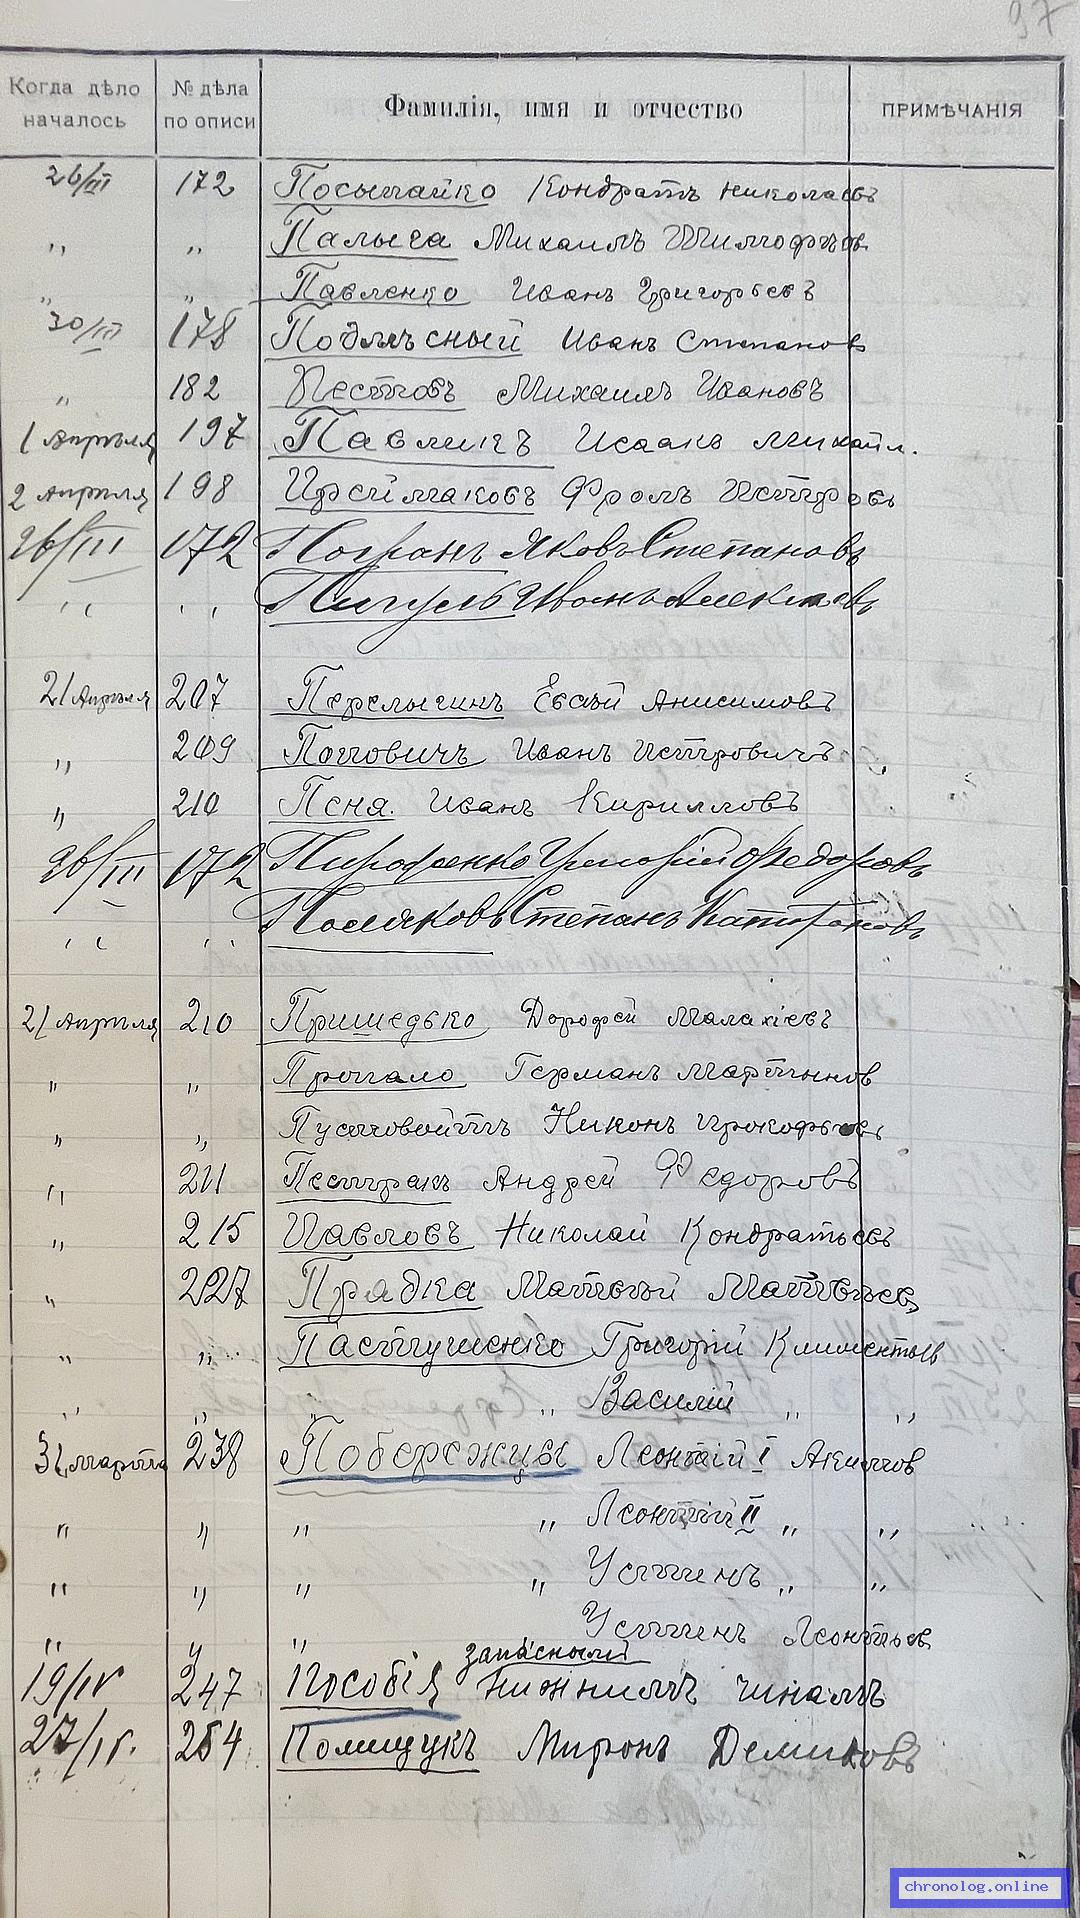 97
Когда дѣло началось № дѣла по описи Фамилія, имя и отчество ПРИМѢЧАНІЯ
26/III 172 Посыпайко Кондратъ Николаевъ
" " Палыга Михаилъ
" " Павленко Иванъ Григорьевъ
30/III 178 Подлѣсный Иванъ Степановъ
" 182 Пестовъ Михаилъ Ивановъ
1 Апрѣля 197 Павликъ Исаакъ Михайл.
2 Апрѣля 198 Фролъ Петровъ
26/III 172 Яковъ Степановъ
" " Пигуль Иванъ
21 Апрѣля 207 Перелыгинъ Евсѣй Анисимовъ
" 209 Поповичъ Иванъ Петровичъ
" 210 Псня. Иванъ Кирилловъ
26/III 172 Григорій Федоровъ
" " Поляковъ Степанъ Капитоновъ
21 Апрѣля 210 Пришедько Дорофей Малахіевъ
" " Германъ Мартыновъ
" " Пустовойтъ Никонъ Прокофьевъ
" 211 Пестракъ Андрей Федоровъ
" 215 Павловъ Николай Кондратьевъ
" 227 Прядка Матвѣй Матвѣев.
" " Пастушенко Григорій Климентьев
" " " " Василій " "
31 Марта 238 Побережцы Леонтій I Акимов
" " " " Леонтій II " "
" " " " Устинъ " "
" " " Устинъ Леонтьев
запаснымъ
19/IV 247 Пособія нижнимъ чинамъ
27/IV. 254 Полищукъ Миронъ Демидовъ
chronolog.online